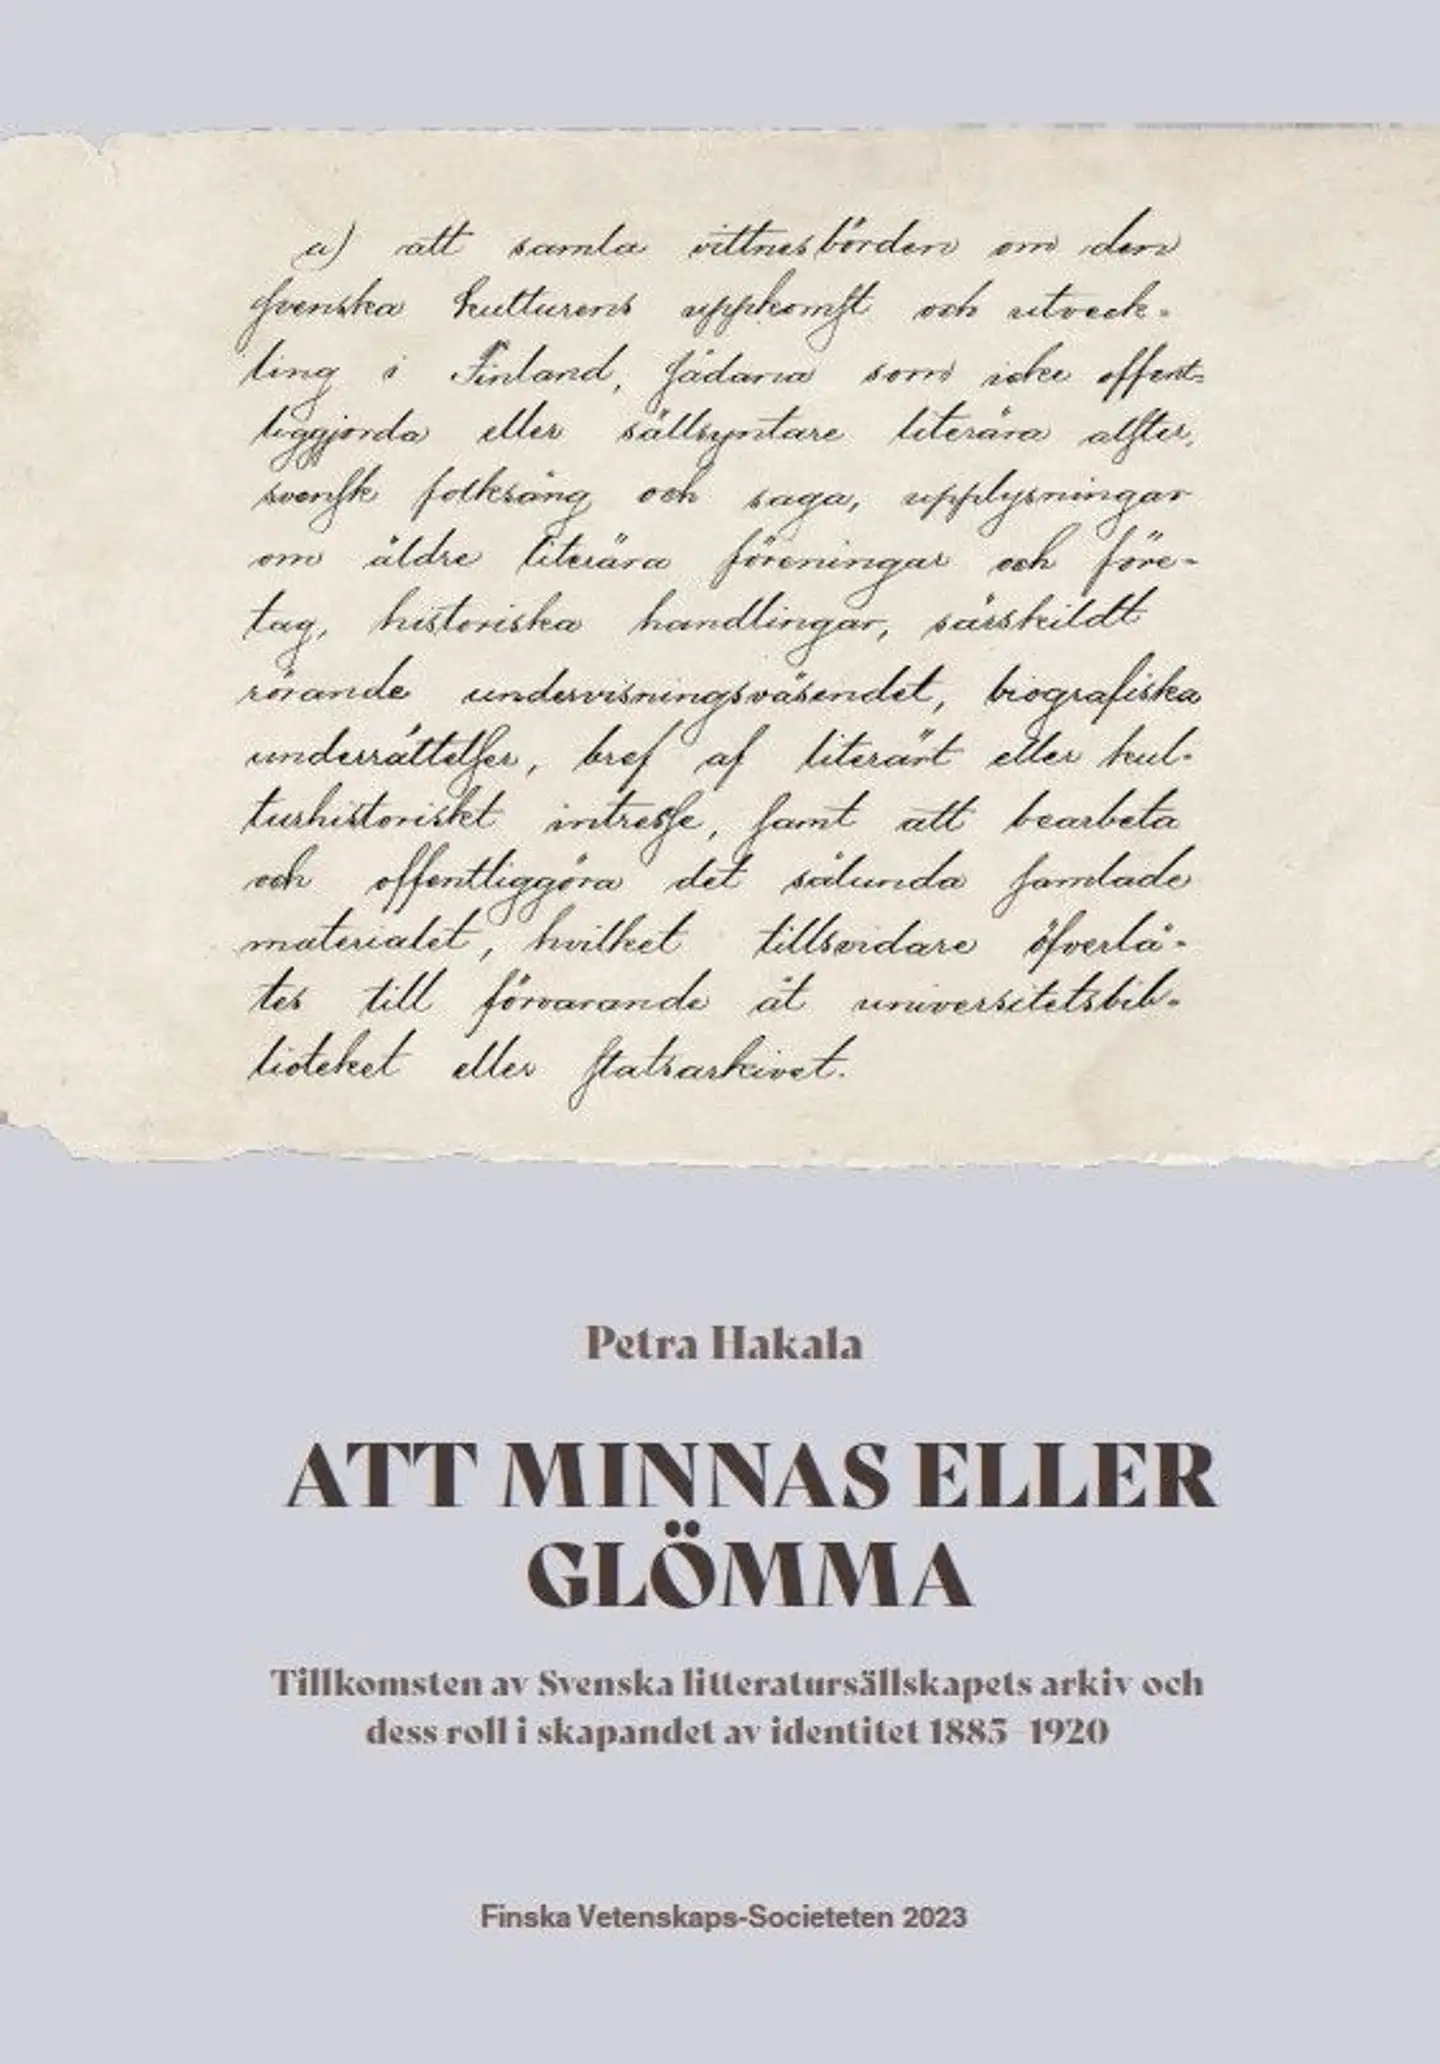 a) att samla vittnesbörden om den
svenska kulturens uppkomst och utveck-
ling i Finland, sådana som icke offent-
liggjorda eller sällsyntare literära alster,
svensk folksång och saga, upplysningar
om äldre literära föreningar och före-
tag, historiska handlingar, särskildt
rörande undervisningsväsendet, biografiska
underrättelser, bref af literärt eller kul-
turhistoriskt intresse, samt att bearbeta
och offentliggöra det sålunda samlade
materialet, hvilket tillsvidare öfverlå-
tes till förvarande åt universitetsbib-
lioteket eller statsarkivet.
Petra Hakala
ATT MINNAS ELLER
GLÖMMA
Tillkomsten av Svenska litteratursällskapets arkiv och
dess roll i skapandet av identitet 1885–1920
Finska Vetenskaps-Societeten 2023